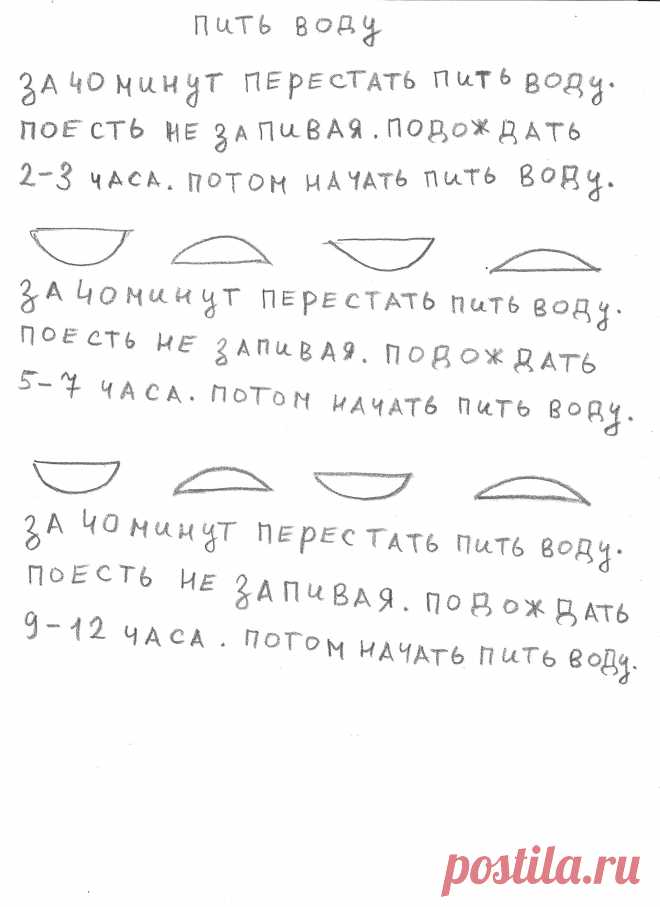 ПИТЬ ВОДУ
ЗА 40 МИНУТ ПЕРЕСТАТЬ ПИТЬ ВОДУ.
ПОЕСТЬ НЕ ЗАПИВАЯ. ПОДОЖДАТЬ
2-3 ЧАСА. ПОТОМ НАЧАТЬ ПИТЬ ВОДУ.
ЗА 40 МИНУТ ПЕРЕСТАТЬ ПИТЬ ВОДУ.
ПОЕСТЬ НЕ ЗАПИВАЯ. ПОДОЖДАТЬ
5-7 ЧАСА. ПОТОМ НАЧАТЬ ПИТЬ ВОДУ.
ЗА 40 МИНУТ ПЕРЕСТАТЬ ПИТЬ ВОДУ.
ПОЕСТЬ НЕ ЗАПИВАЯ. ПОДОЖДАТЬ
9-12 ЧАСА. ПОТОМ НАЧАТЬ ПИТЬ ВОДУ.
postila.ru